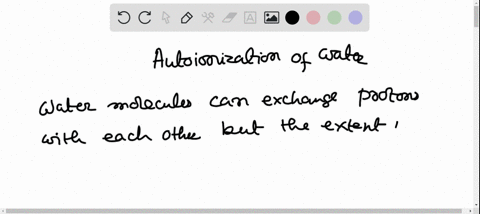 Autoionization of water
Water molecules can exchange protons
with each other but the extent